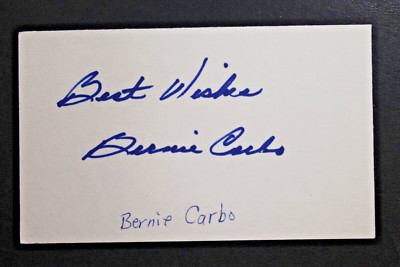 Best Wishes
Bernie Carbo
Bernie Carbo